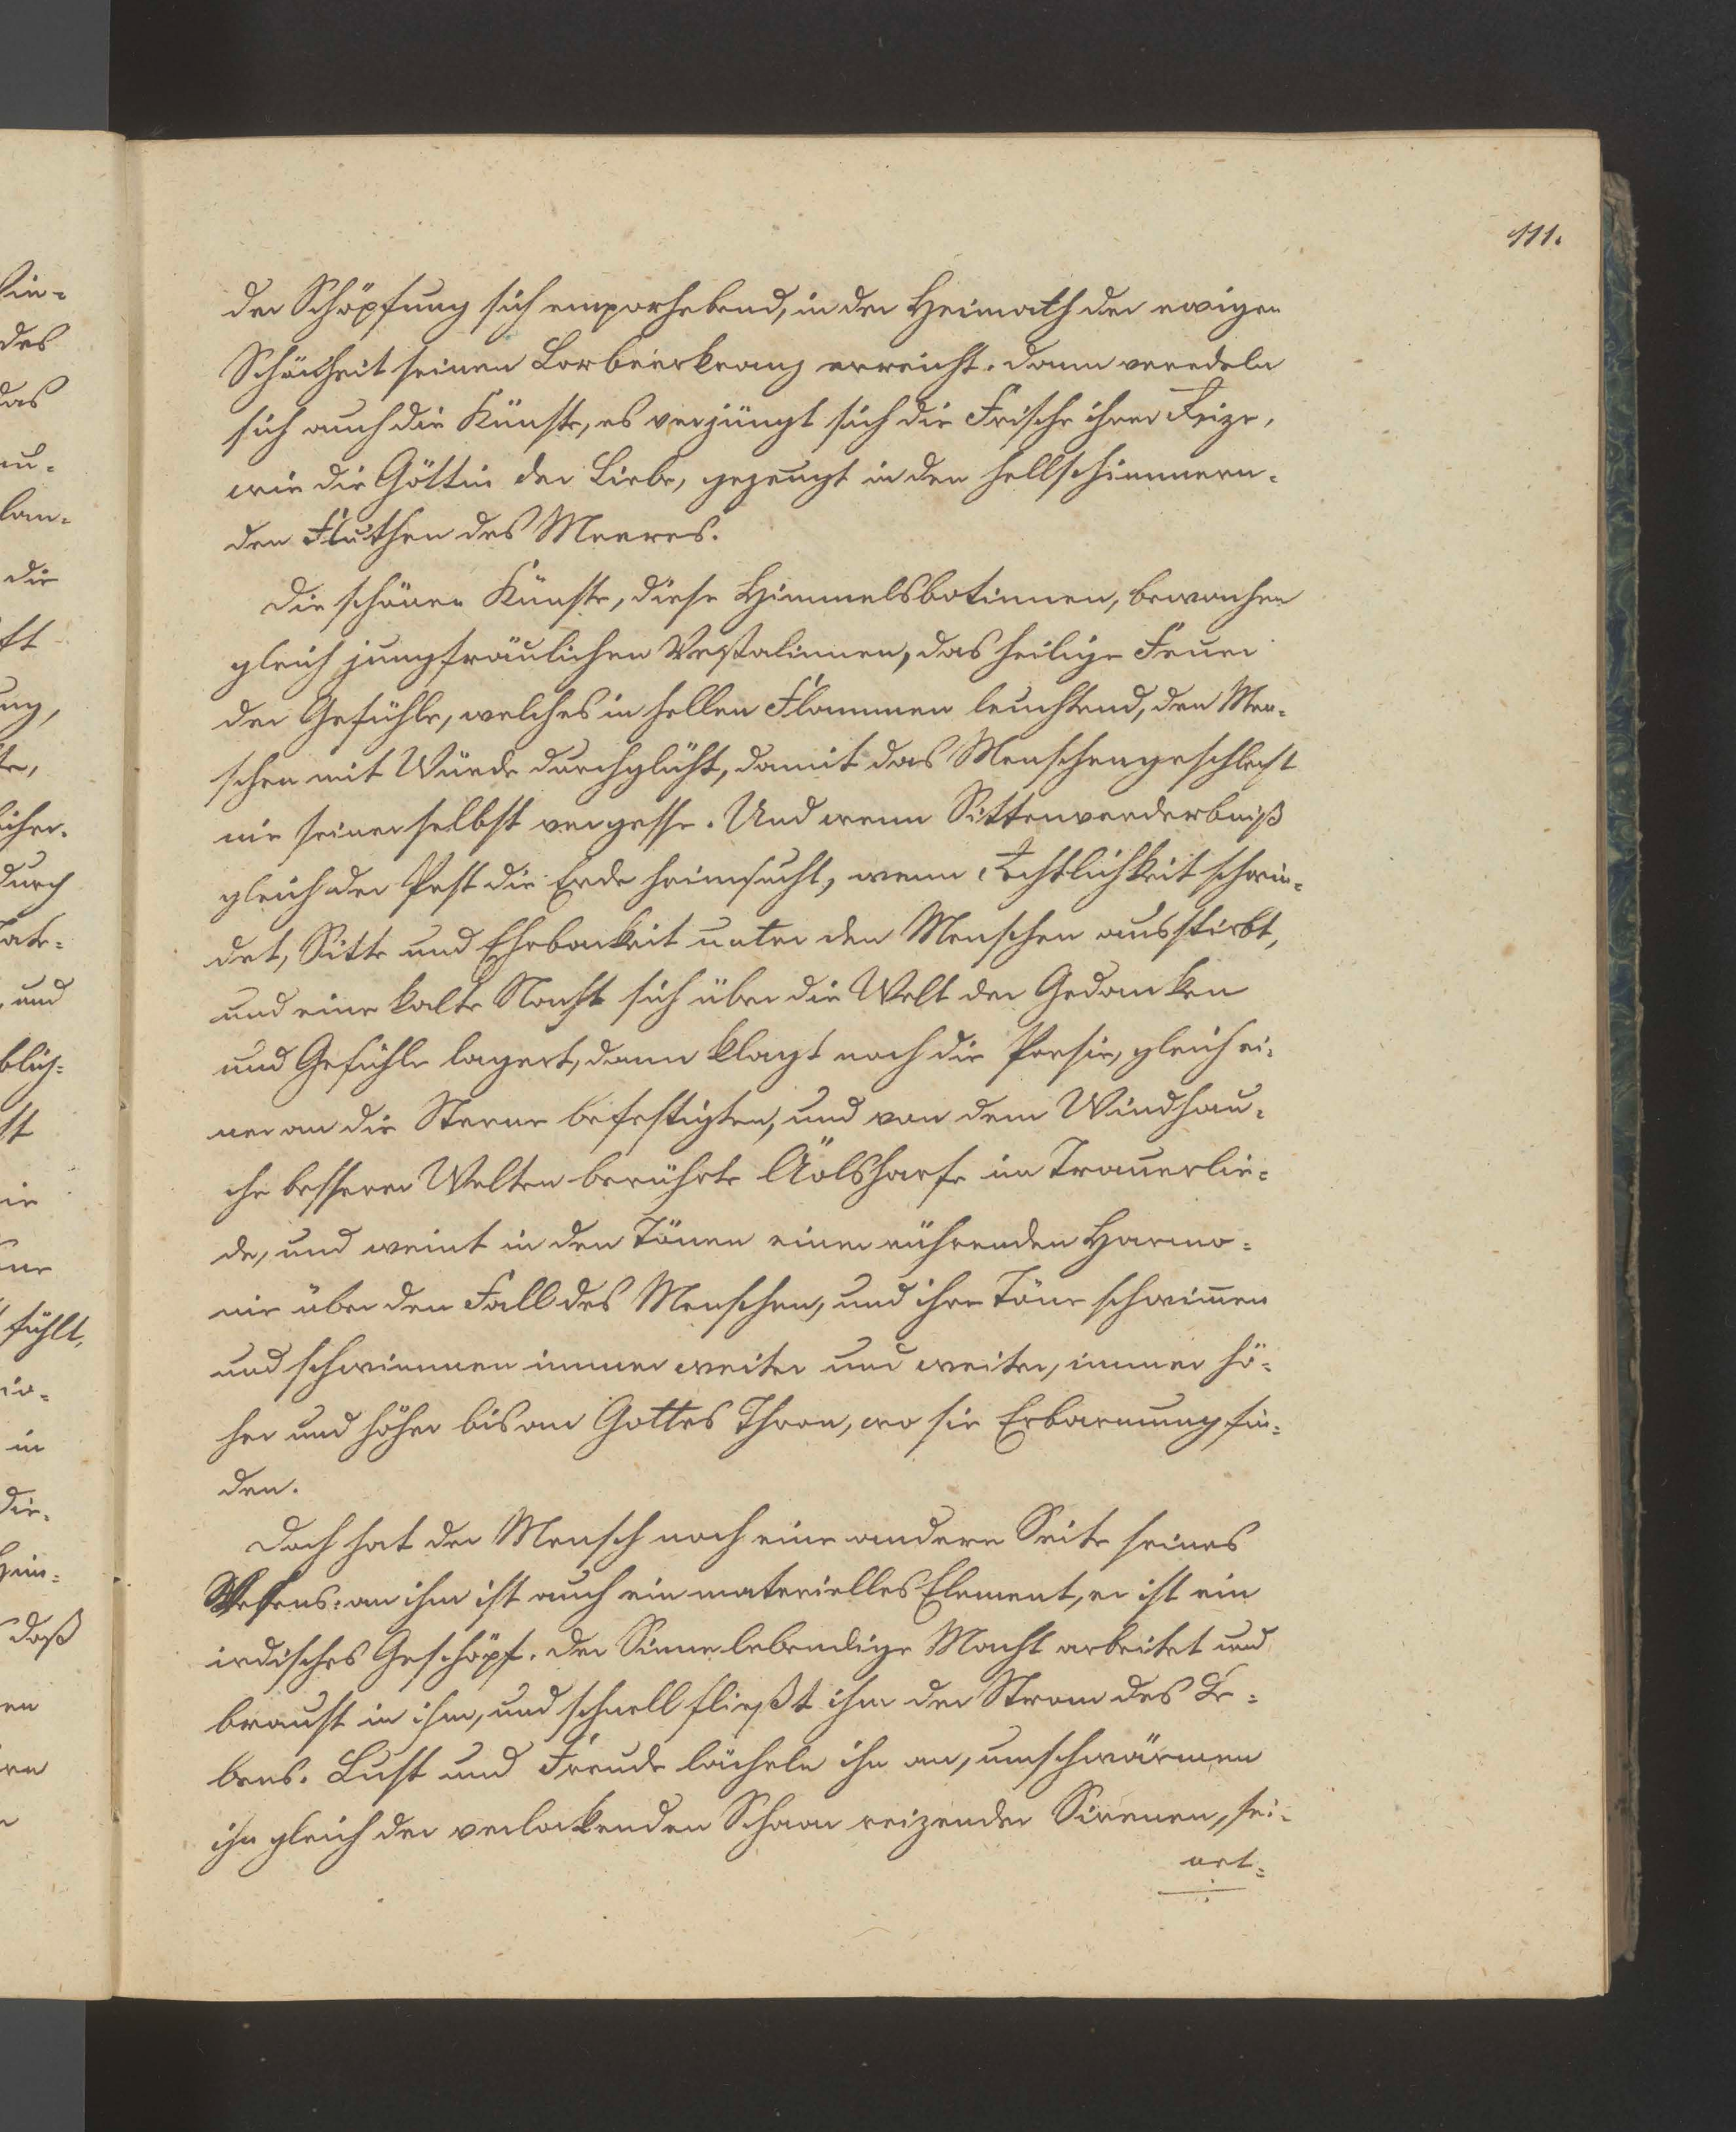 111.
der Schöpfung sich emporhebend, in der Heimath der ewigen
Schönheit seinen Lorbeerkranz erreicht. Dann veredeln
sich auch die Künste, es verjüngt sich die Frische ihrer Reize,
wie die Göttin der Liebe, gezeugt in den hellschimmern-
den Fluthen des Meeres.
Die schönen Künste, diese Himmelsbotinnen, bewachen
gleich jungfräulichen Vestalinnen, das heilige Feuer
der Gefühle, welches in hellen Flammen leuchtend, den Men-
schen mit Würde durchglüht, damit das Menschengeschlecht
nie seiner selbst vergesse. Und wenn Sittenverderbniß
gleich der Pest die Erde heimsucht, wenn Rechtlichkeit schwin-
det, Sitte und Ehrbarkeit unter den Menschen ausstirbt,
und eine kalte Nacht sich über die Welt der Gedanken
und Gefühle lagert, dann klagt noch die Poesie, gleich ei-
ner an die Sterne befestigten, und von dem Windhau-
che besserer Welten berührte Äolsharfe im Trauerlie-
de, und weint in den Tönen einer rührenden Harmo-
nie über den Fall des Menschen, und ihre Töne schwimen
und schwimmen immer weiter und weiter, immer hö-
her und höher bis an Gottes Thron, wo sie Erbarmung fin-
den.
Doch hat der Mensch noch eine andere Seite seines
Wesens: an ihm ist auch ein materielles Element, er ist ein
irdisches Geschöpf. Der Sinne lebendige Macht arbeitet und
braust in ihm, und schnell fließt ihm der Strom des Le-
bens. Lust und Freude lächeln ihn an, umschwärmen
ihn gleich der verlockenden Schaar reizender Sirenen, sei-